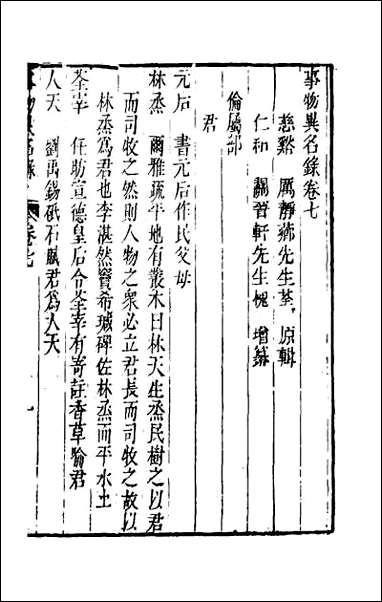 事物異名錄卷七
慈谿　厲靜薌先生荃　原輯
仁和　關晉軒先生槐　增纂
倫屬部
君
元后　書元后作民父母
林烝　爾雅疏平地有叢木曰林天生烝民樹之以君
而司牧之然則人物之衆必立君長而司牧之故以
林烝為君也李湛然竇希瑊碑佐林烝而平水土
荃宰　任昉宣德皇后令荃宰有寄註香草喻君
人天　劉禹錫砥石賦君為人天